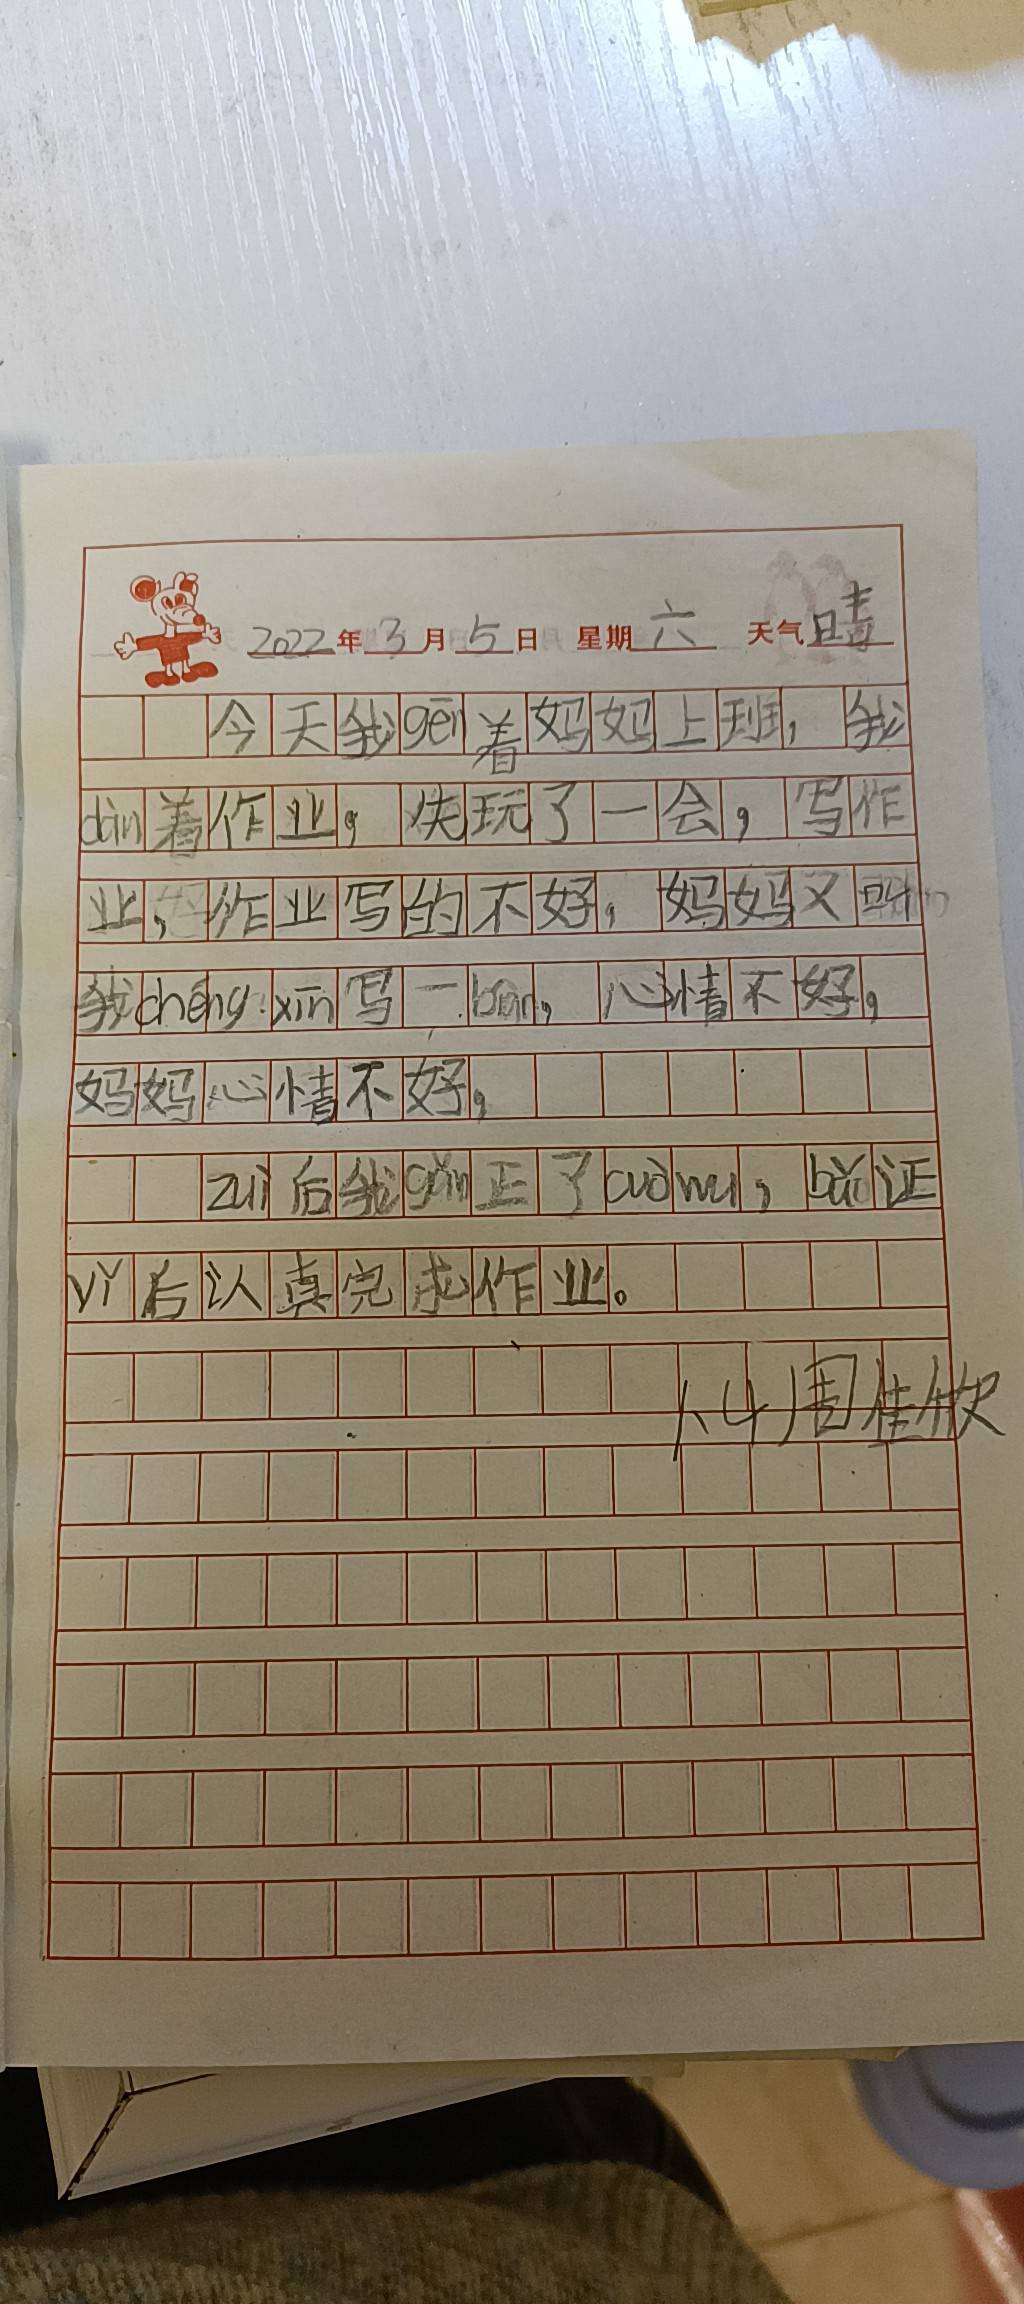 2022年3月5日 星期六 天气晴
今天我gēn着妈妈上班，我
dàn着作业，先玩了一会，写作
业，作业写的不好，妈妈又叫
我chóng xīn写一biàn，心情不好，
妈妈心情不好，
zuì后我gǎi正了cuò wu，bǎo证
yǐ后认真完成作业。
1.4周佳欣